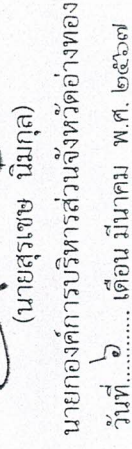 (นายสุรเชษ นิ่มกุล)
นายกองค์การบริหารส่วนจังหวัดอ่างทอง
วันที่ ๖ เดือน มีนาคม พ.ศ. ๒๕๖๗